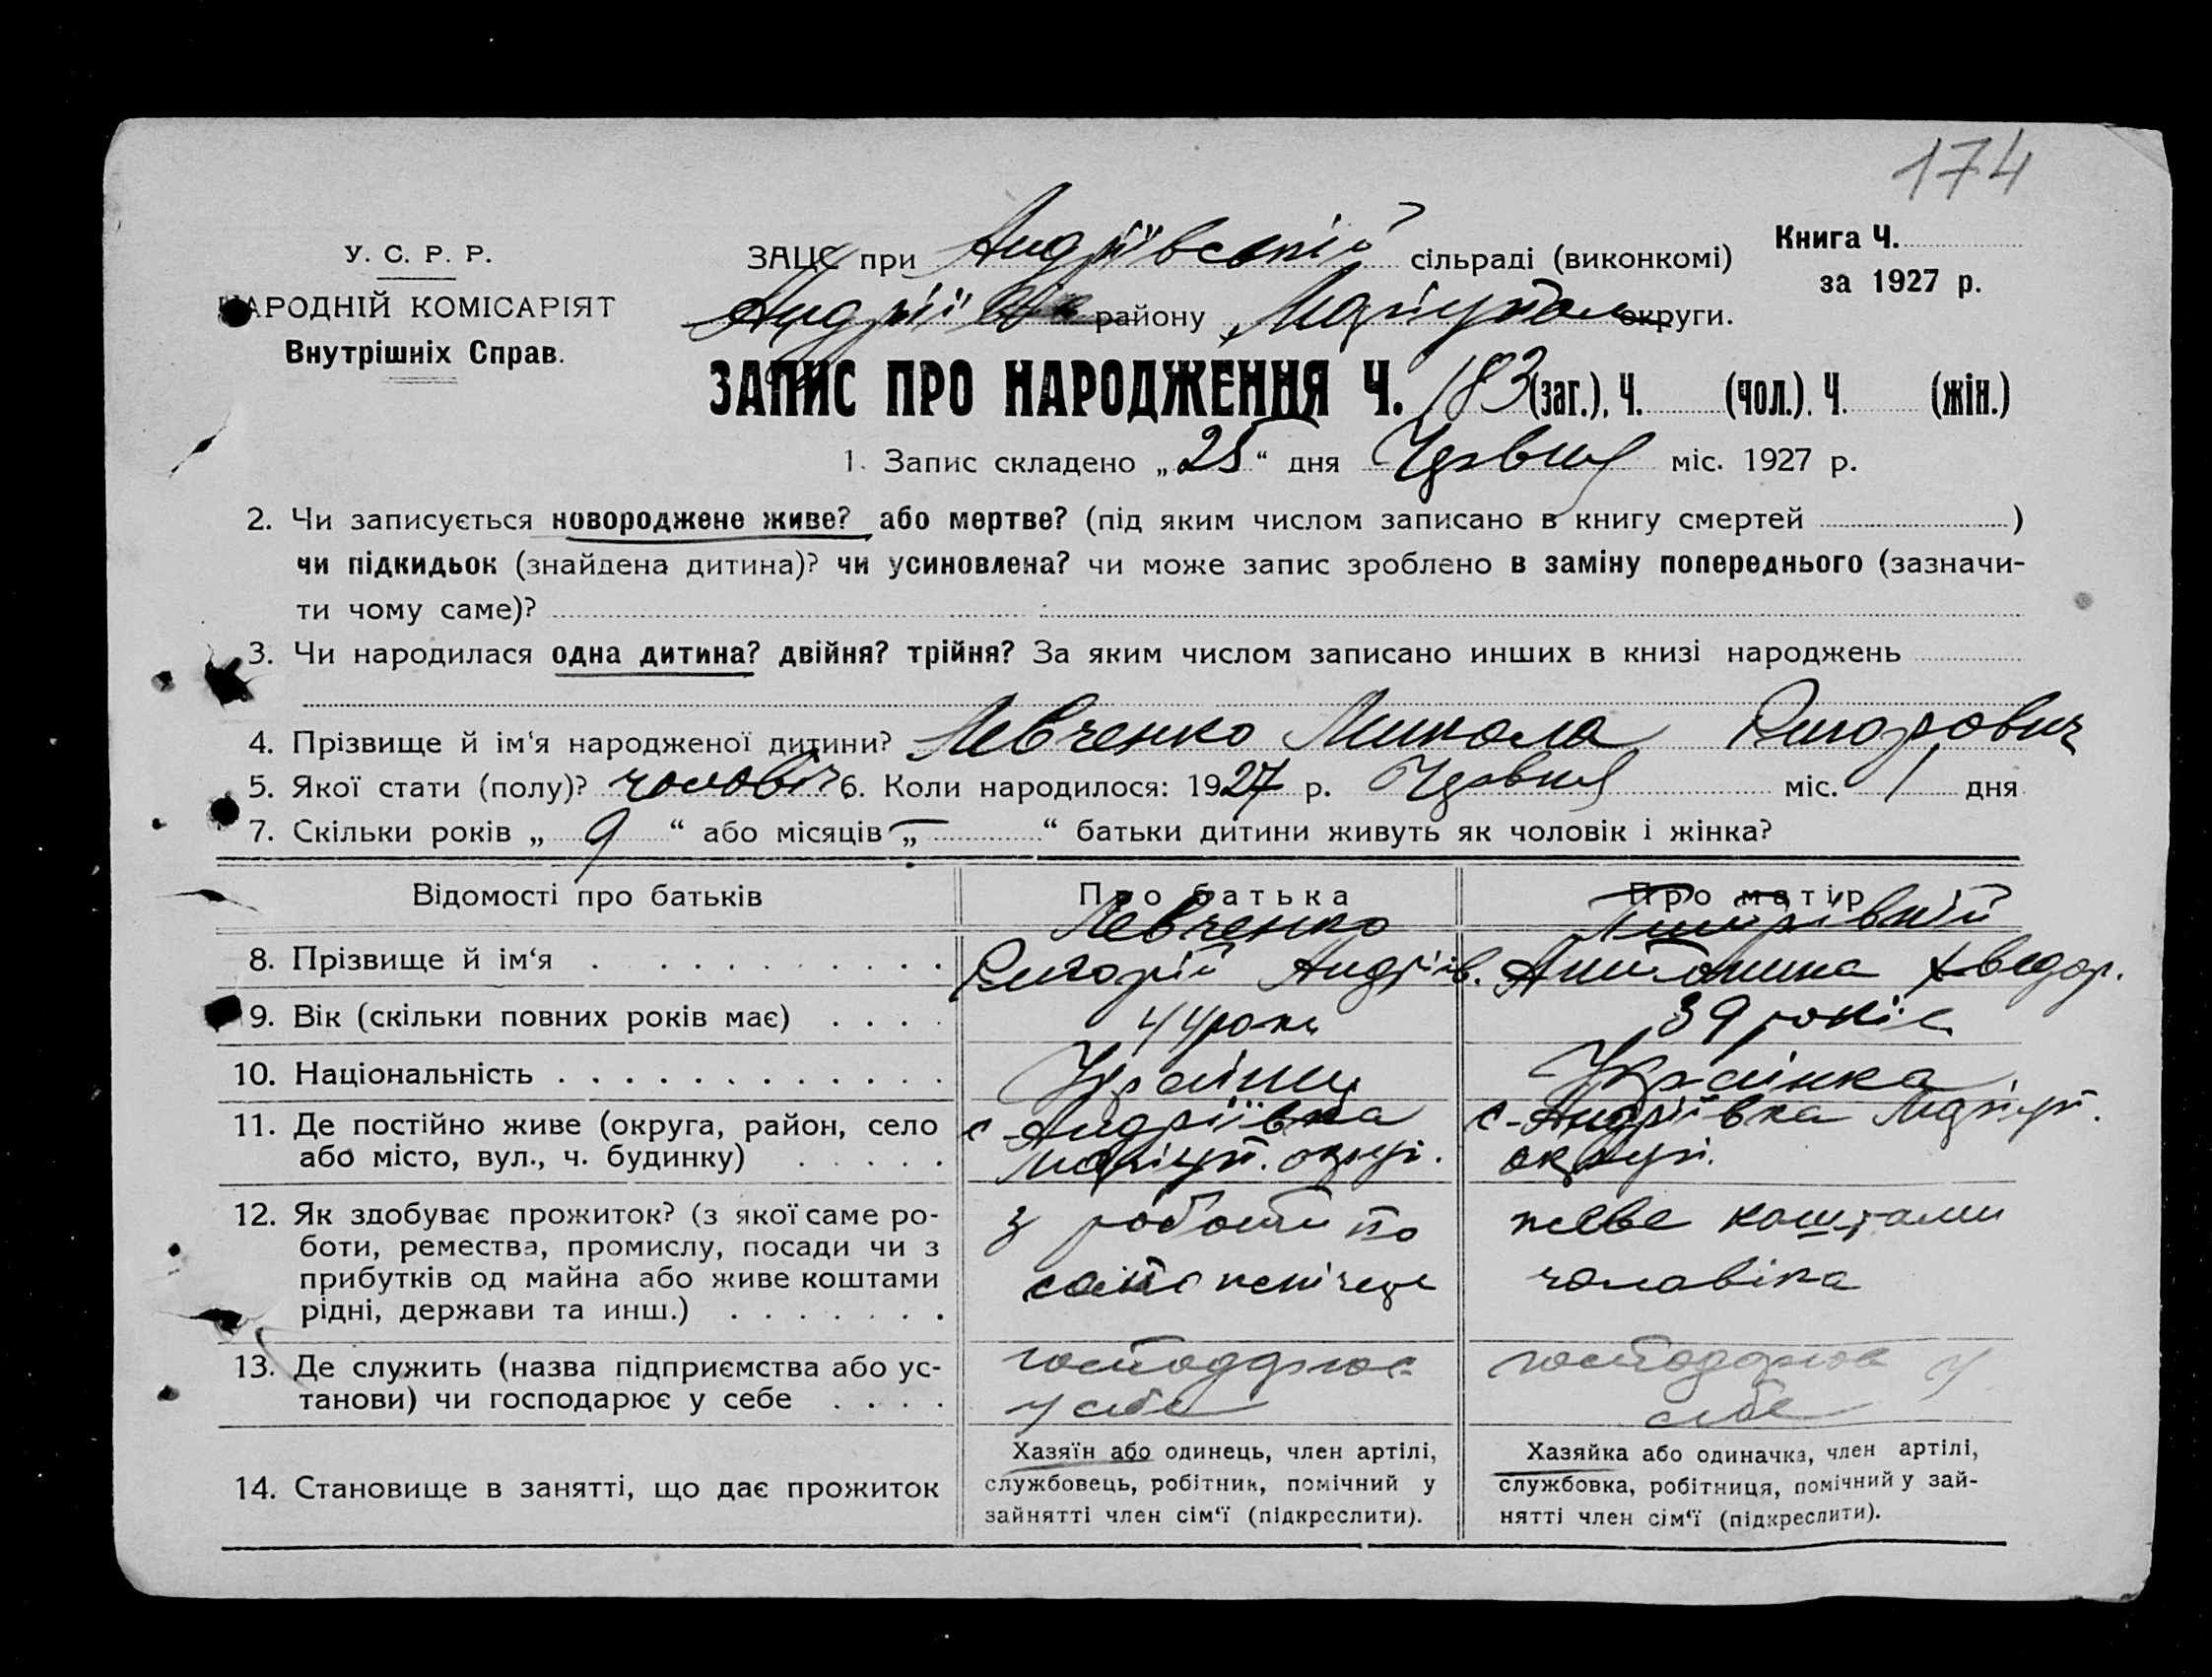 174
У. С. Р. Р.
НАРОДНІЙ КОМІСАРІЯТ
Внутрішніх Справ.
ЗАЦС при Андріївській сільраді (виконкомі)
Книга Ч.
за 1927 р.
району Маріупол округи.
ЗАПИС ПРО НАРОДЖЕННЯ Ч. 183 (заг.), Ч. (чол.). Ч. (жін.)
1. Запис складено „25“ дня Червня міс. 1927 р.
2. Чи записується новороджене живе? або мертве? (під яким числом записано в книгу смертей )
чи підкидьок (знайдена дитина)? чи усиновлена? чи може запис зроблено в заміну попереднього (зазначи-
ти чому саме)?
3. Чи народилася одна дитина? двійня? трійня? За яким числом записано инших в книзі народжень
4. Прізвище й ім‘я народженої дитини? Левченко Микола Григорович
5. Якої стати (полу)? чоловіч. 6. Коли народилося: 1927 р. Червня міс. 1 дня
7. Скільки років „ 9 “ або місяців „ — “ батьки дитини живуть як чоловік і жінка?
Відомості про батьків Про батька Про матір
8. Прізвище й ім‘я
Левченко
Григорій Андріїв.
Хведор.
9. Вік (скільки повних років має) 44 роки 39 років
10. Національність Українець Українка
11. Де постійно живе (округа, район, село
або місто, вул., ч. будинку)
с. Андріївка
Маріуп. округ.
с. Андріївка Маріуп.
округ.
12. Як здобуває прожиток? (з якої саме ро-
боти, ремества, промислу, посади чи з
прибутків од майна або живе коштами
рідні, держави та инш.)
з роботи по
живе коштами
чоловіка
13. Де служить (назва підприємства або ус-
танови) чи господарює у себе
господарює
у себе
господарює у
себе
14. Становище в занятті, що дає прожиток
Хазяїн або одинець, член артілі,
службовець, робітник, помічний у
зайнятті член сім‘ї (підкреслити).
Хазяйка або одиначка, член артілі,
службовка, робітниця, помічний у зай-
нятті член сім‘ї (підкреслити).